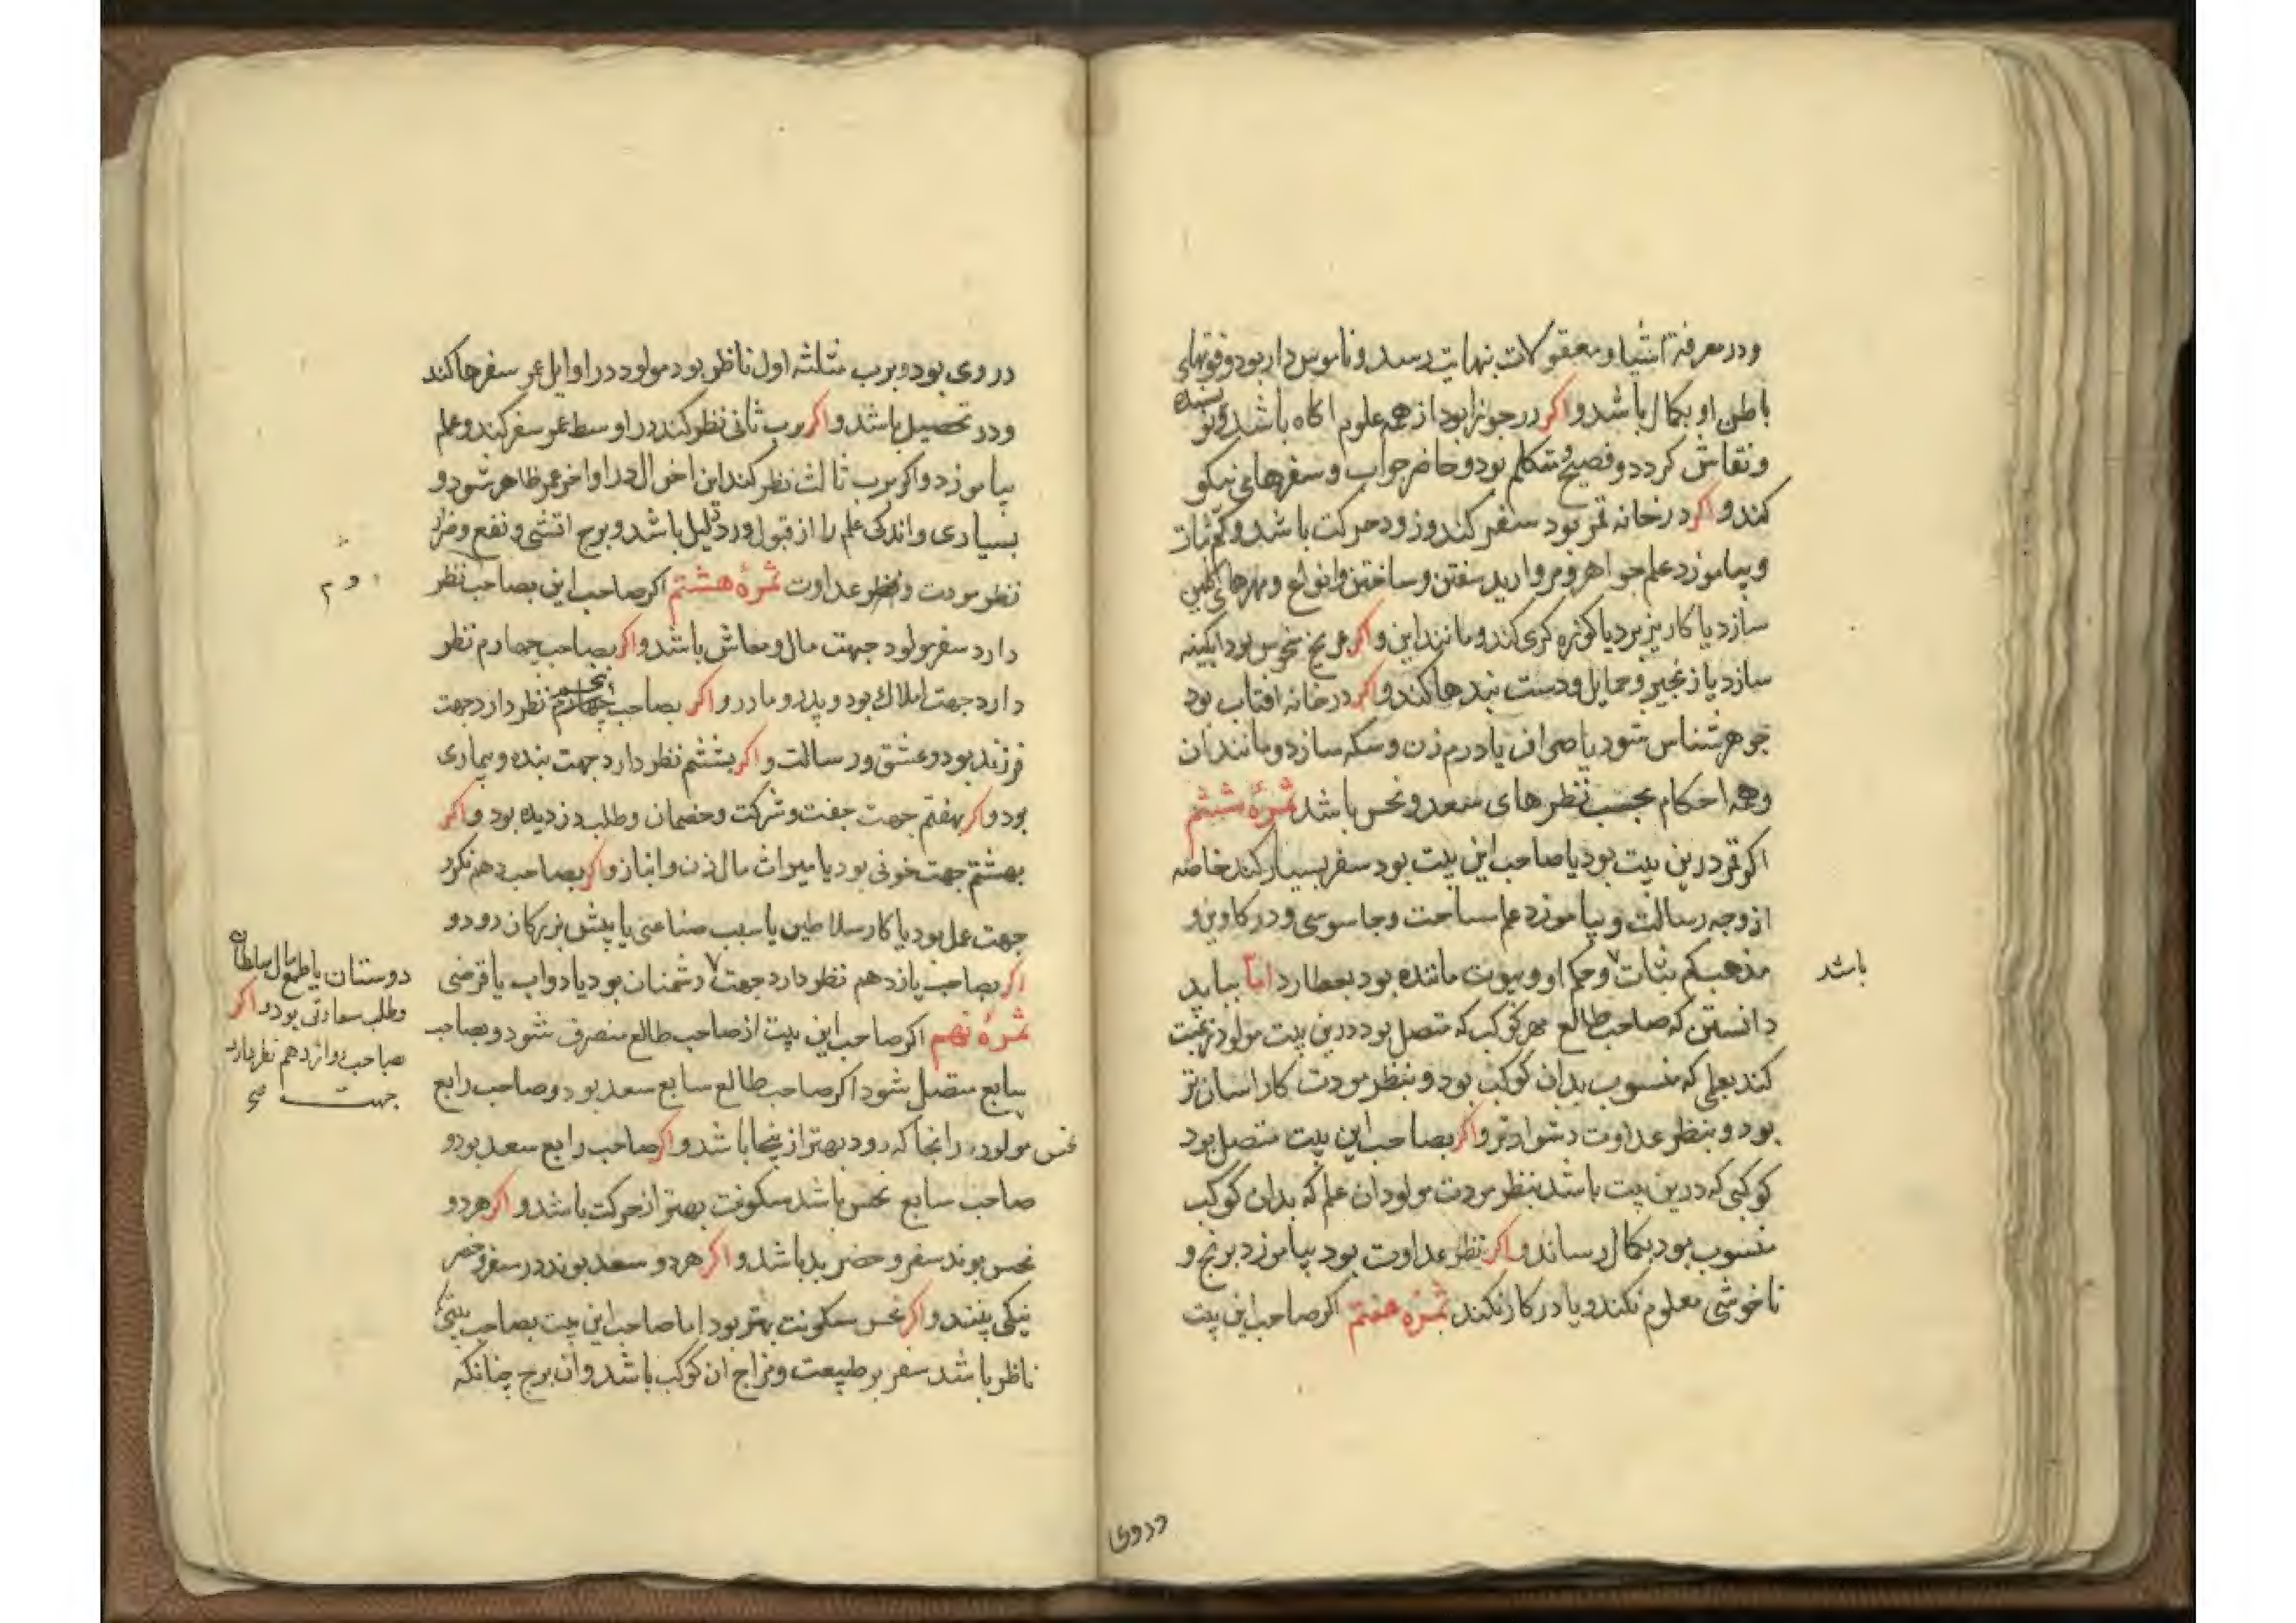 ودر معرفة اشیا و معقولات بنهایت رسد و ناموس دار بود و قوتهای
باطن او بکمال باشد و اکر در جوزا بود از همه علوم اکاه باشد و نویسنده
و نقاش کردد و فصیح و متکلم بود و حاضر جواب و سفرهای نیکو
کند و اکر در خانه قمر بود سفر کند و زود حرکت باشد و کم ثبات
و بیاموزد علم جواهر و مروارید سفتن و ساختن و انواع و مهرهای کلین
سازد یا کاریز برد یا کوزه کری کند و مانند این و اکر مریخ منحوس بود ابکینه
سازد یا زنجیر و حمایل و دست بندها کند و اکر در خانه افتاب بود
جوهر شناس شود یا صراف یا درم زن و سکه سازد و مانند ان
و همه احکام بحسب نظرهای سعد و نحس باشد ثمرهٔ ششم
اکر قمر درین بیت بود یا صاحب این بیت بود سفر بسیار کند خاصه
از وجه رسالت و بیاموزد علم مساحت و جاسوسی و در کار دین و
مذهب کم ثبات و حکم او و بیوت مانده بود بعطارد اما بباید
باشد
دانستن که صاحب طالع بهر کوکب که متصل بود درین بیت مولود رغبت
کند بعلمی که منسوب بدان کوکب بود و بنظر مودت کار اسان تر
بود و بنظر عداوت دشوارتر و اکر بصاحب این بیت متصل بود
کوکبی که درین بیت باشد بنظر مودت مولود ان علم که بدان کوکب
منسوب بود بکمال رساند و اکر نظر عداوت بود بیاموزد برنج و
ناخوشی معلوم نکند و یا در کار نکند ثمرهٔ هفتم اکر صاحب این بیت
در وی
در وی بود و برب مثلثه اول ناظر بود مولود در اوایل عمر سفرها کند
ودر تحصیل باشد و اکر برب ثانی نظر کند در اوسط عمر سفر کند و علم
بیاموزد و اکر برب ثالث نظر کند این احوال در اواخر عمر ظاهر شود و
بسیاری و اندکی علم را از قبول و رد دلیل باشد و برج اتشی و نفع و ضرر
نظر مودت و نظر عداوت ثمرهٔ هشتم اکر صاحب این بصاحب نظر
دوم
دارد سفر مولود جهت مال و معاش باشد و اکر بصاحب چهارم نظر
دارد جهت املاک بود و پدر و مادر و اکر بصاحب پنجم نظر دارد جهت
فرزند بود و عشق و رسالت و اکر بششم نظر دارد جهت بنده و بیماری
بود و اکر بهفتم جهت جفت و شرکت و خصمان و طلب دزدیده بود و اکر
بهشتم جهت خونی بود یا میراث مال زن و انباز و اکر بصاحب دهم نکرد
جهت عمل بود یا کار سلاطین یا سبب صناعتی یا پیش بزرکان رود و
اکر بصاحب یازدهم نظر دارد جهت دشمنان بود یا دواب یا قرضی
دوستان یا طمع مال سلطان
و طلب سعادتی بود و اکر
بصاحب دوازدهم نظر دارد
جهت صح
ثمرهٔ نهم اکر صاحب این بیت از صاحب طالع منصرف شود و بصاحب
سابع متصل شود اکر صاحب طالع سابع سعد بود و صاحب رابع
نحس مولود را انجا که رود بهتر از ینجا باشد و اکر صاحب رابع سعد بود و
صاحب سابع نحس باشد سکونت بهتر از حرکت باشد و اکر هر دو
نحس بوند سفر و حضر بد باشد و اکر هر دو سعد بوند در سفر و حضر
نیکی بیند و اکر نحس سکونت بهتر بود اما صاحب این بیت بصاحب بیتی که
ناظر باشد سفر بر طبیعت و مزاج ان کوکب باشد و ان برج چنانکه